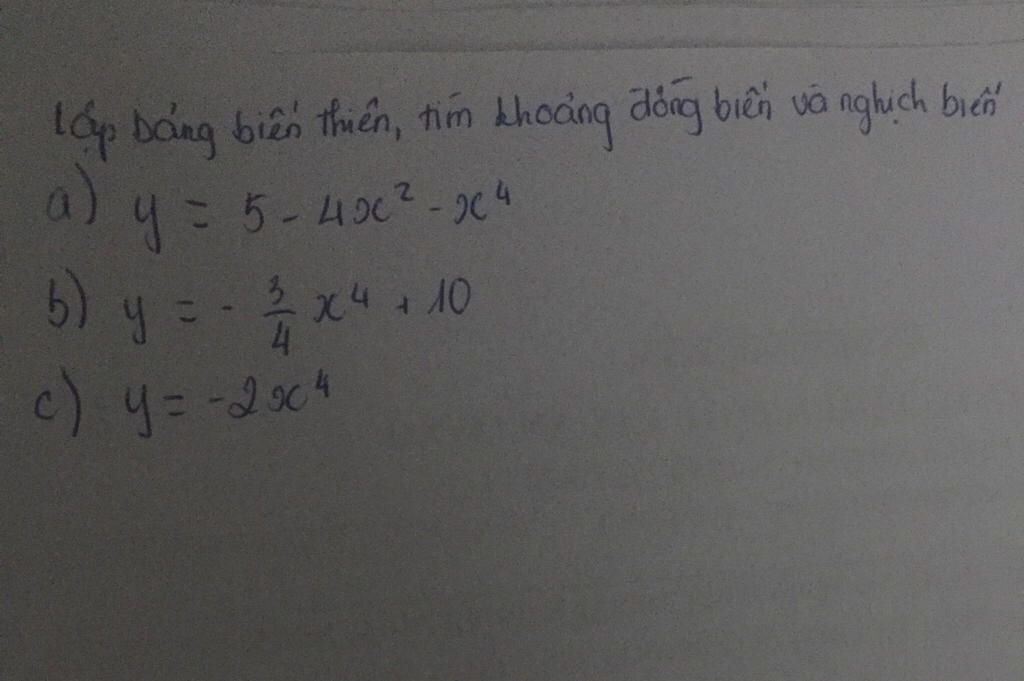 Lập bảng biến thiên, tìm khoảng đồng biến và nghịch biến
a) y = 5 - 4x² - x⁴
b) y = - 3/4 x⁴ + 10
c) y = -2x⁴